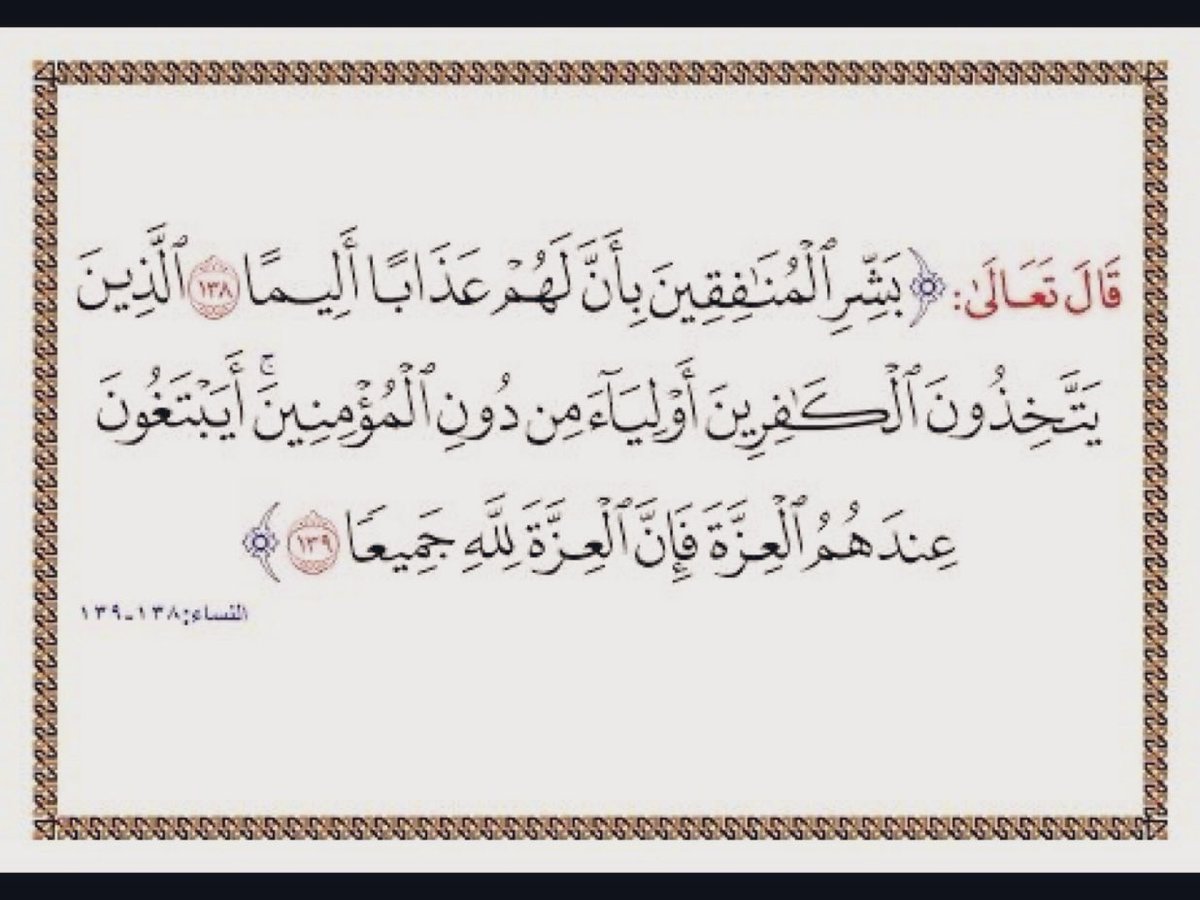 قَالَ تَعَالَىٰ: ﴿بَشِّرِ ٱلْمُنَـٰفِقِينَ بِأَنَّ لَهُمْ عَذَابًا أَلِيمًا ١٣٨ ٱلَّذِينَ
يَتَّخِذُونَ ٱلْكَـٰفِرِينَ أَوْلِيَآءَ مِن دُونِ ٱلْمُؤْمِنِينَ ۚ أَيَبْتَغُونَ
عِندَهُمُ ٱلْعِزَّةَ فَإِنَّ ٱلْعِزَّةَ لِلَّهِ جَمِيعًا ١٣٩﴾
النساء: ١٣٨-١٣٩